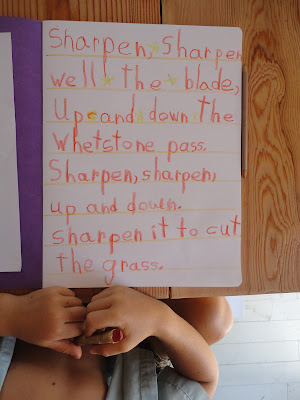 Sharpen, sharpen
well the blade,
Up and down the
whetstone pass.
Sharpen, sharpen,
up and down.
sharpen it to cut
the grass.